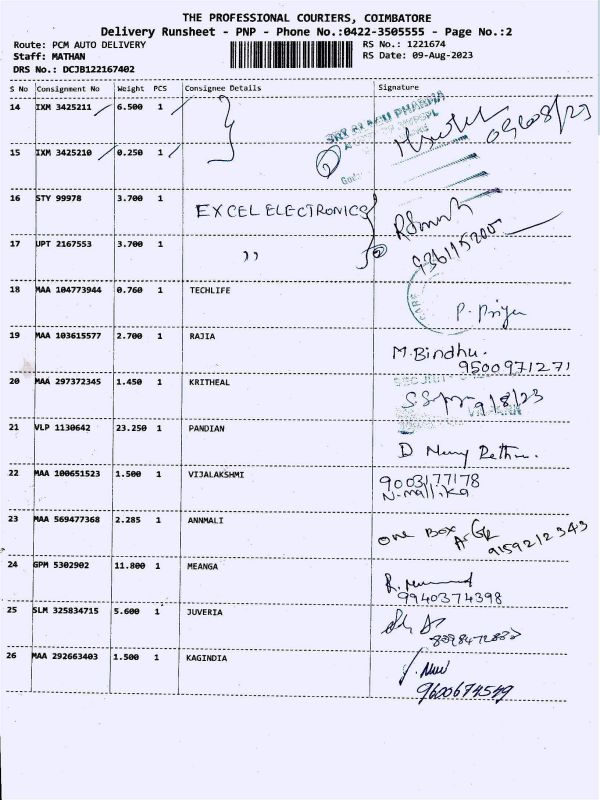 THE PROFESSIONAL COURIERS, COIMBATORE
Delivery Runsheet - PNP - Phone No.:0422-3505555 - Page No.:2
Route: PCM AUTO DELIVERY RS No.: 1221674
Staff: MATHAN RS Date: 09-Aug-2023
DRS No.: DCJB122167402
S No Consignment No Weight PCS Consignee Details Signature
14 IXM 3425211 6.500 1
SRI ALAGU PHARMA
15 IXM 3425210 0.250 1
16 STY 99978 3.700 1 EXCEL ELECTRONICS
17 UPT 2167553 3.700 1 ,,
18 MAA 104773944 0.760 1 TECHLIFE P. Priya
19 MAA 103615577 2.700 1 RAJIA M.Bindhu.
9500971271
20 MAA 297372345 1.450 1 KRITHEAL 9/8/23
21 VLP 1130642 23.250 1 PANDIAN D
22 MAA 100651523 1.500 1 VIJALAKSHMI 9003177178
N.mallika
23 MAA 569477368 2.285 1 ANNMALI One Box
9159212343
24 GPM 5302902 11.800 1 MEANGA
9940374398
25 SLM 325834715 5.600 1 JUVERIA
26 MAA 292663403 1.500 1 KAGINDIA
9600674549